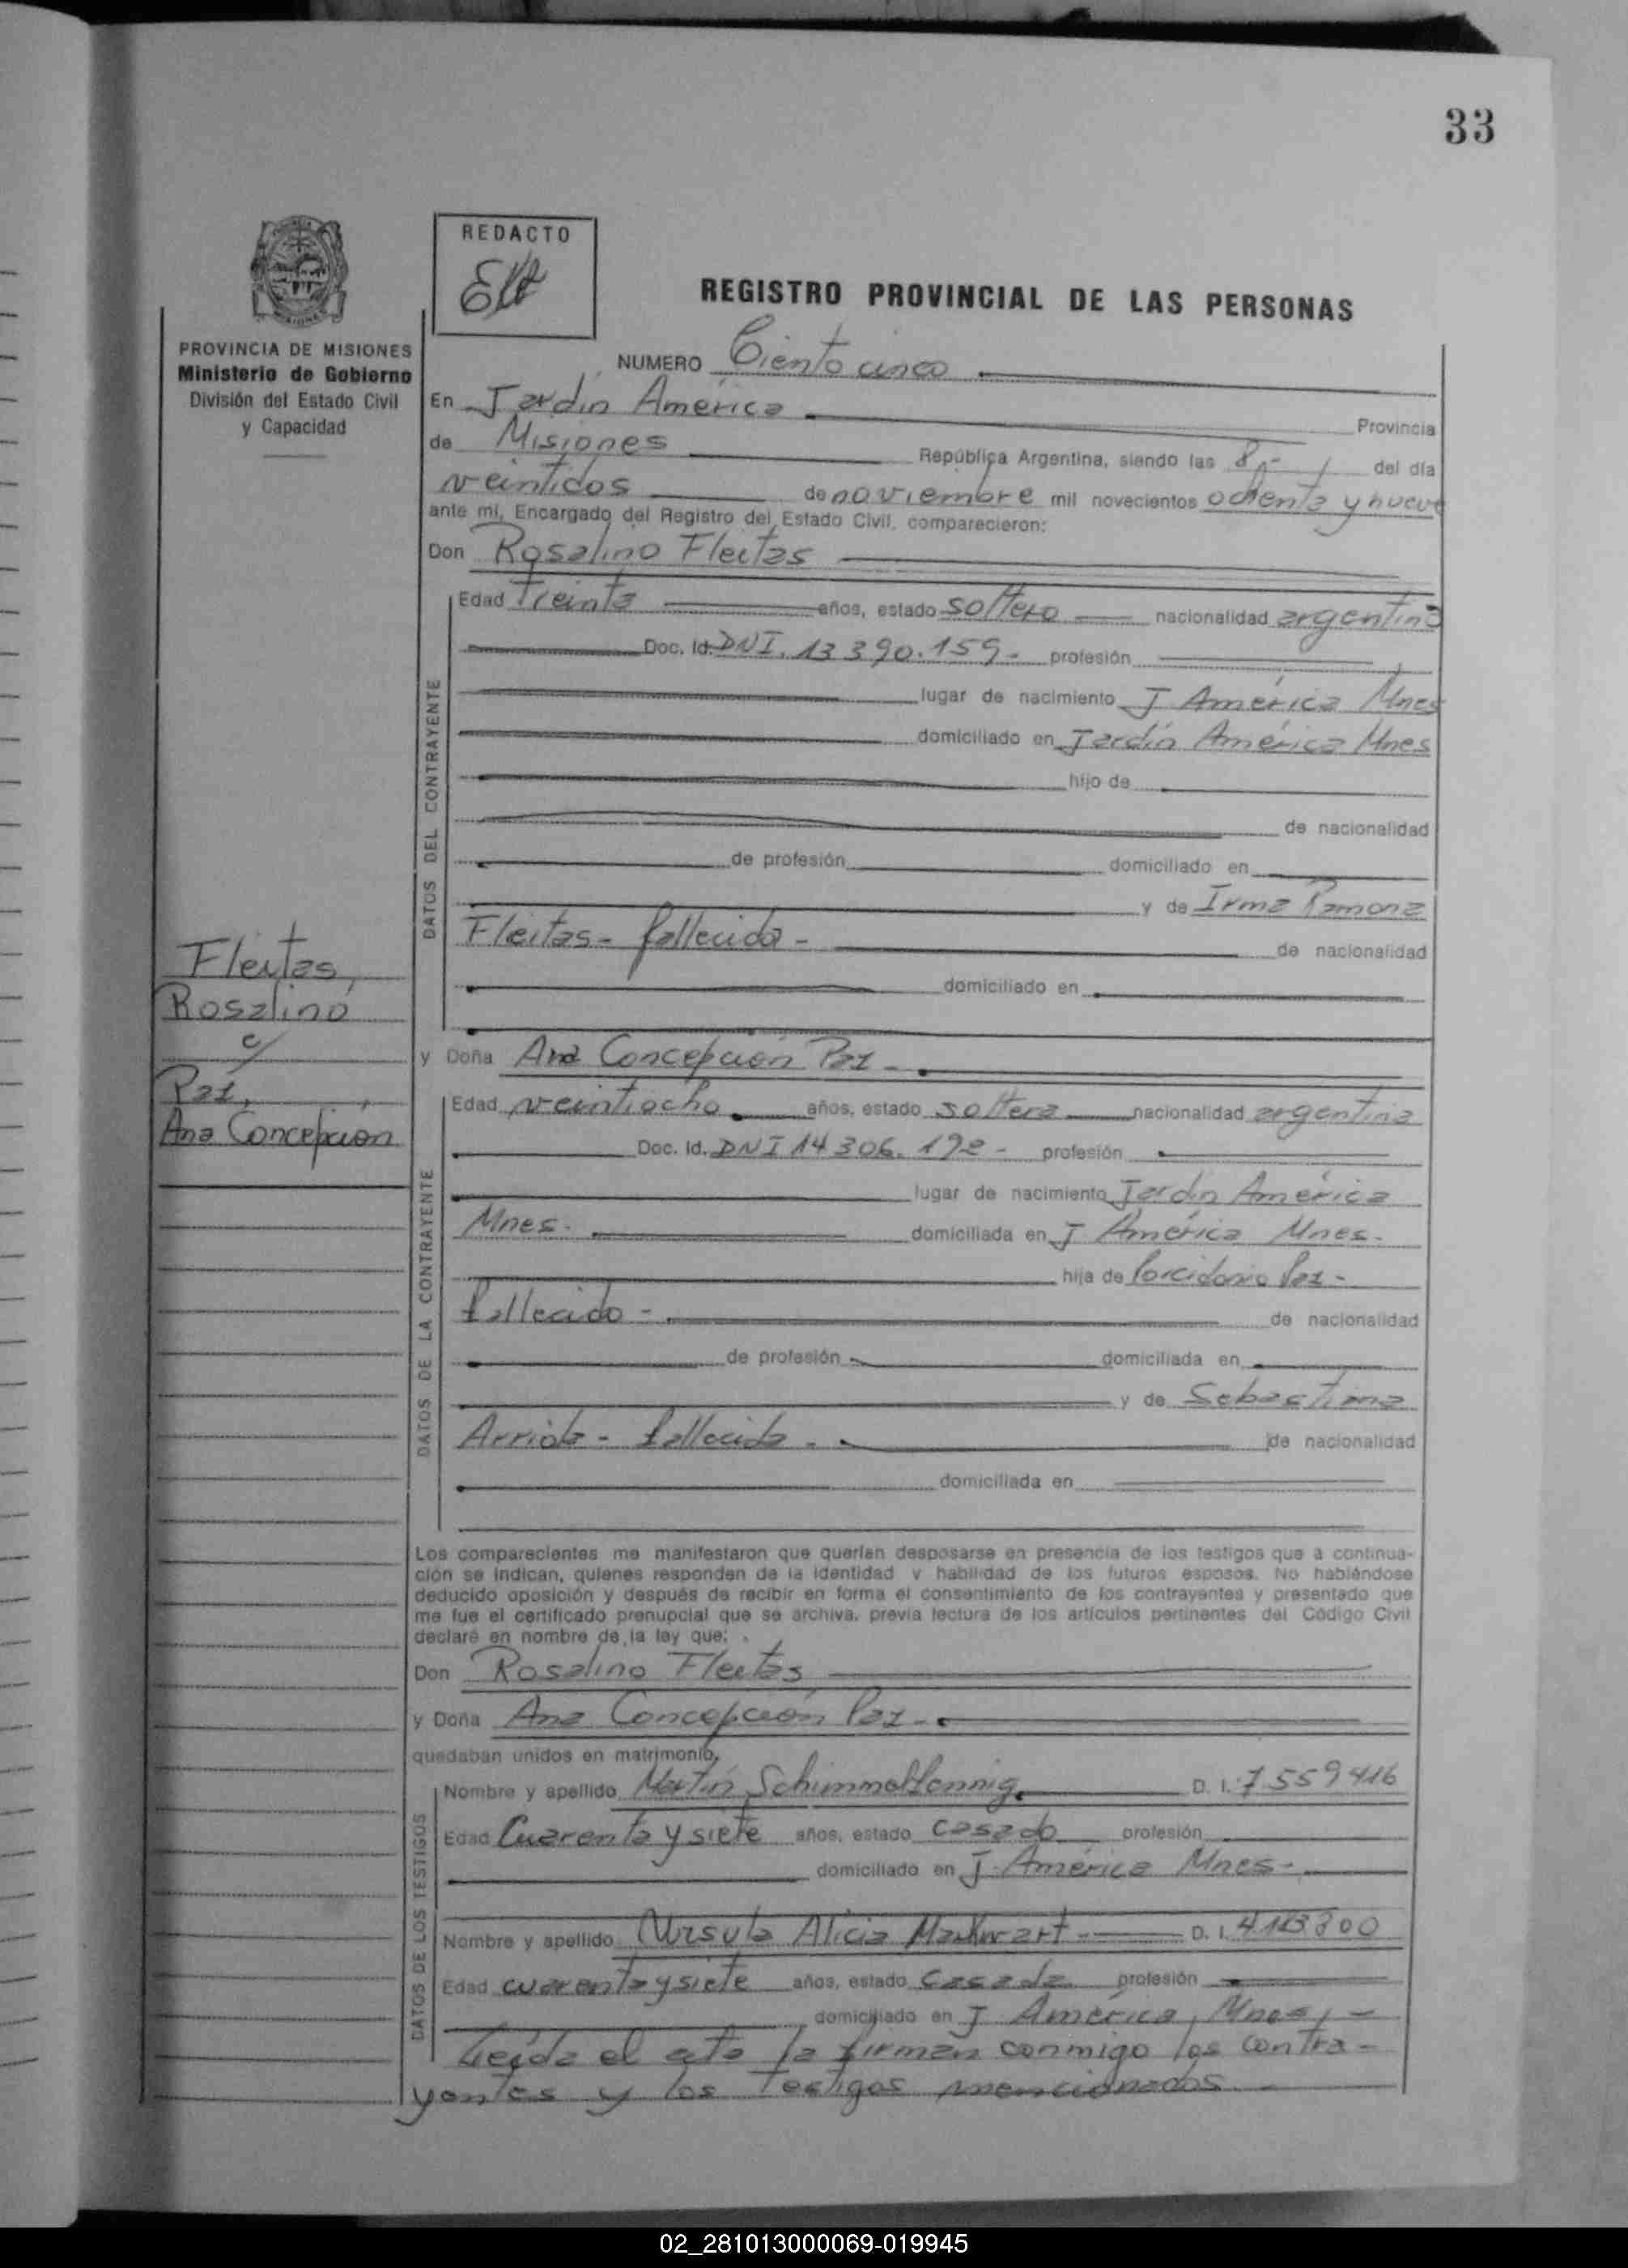 33
REDACTO
REGISTRO PROVINCIAL DE LAS PERSONAS
PROVINCIA DE MISIONES
Ministerio de Gobierno
División del Estado Civil
y Capacidad
NUMERO Ciento cinco
En Jardín América Provincia
de Misiones República Argentina, siendo las 8 del día
veintidos de noviembre mil novecientos ochenta y nueve
ante mí, Encargado del Registro del Estado Civil, comparecieron:
Don Rosalino Fleitas
DATOS DEL CONTRAYENTE
Edad Treinta años, estado soltero nacionalidad argentina
Doc. Id. DNI. 13 390.159- profesión
lugar de nacimiento J América Mnes
domiciliado en Jardín América Mnes
hijo de
de nacionalidad
de profesión domiciliado en
y de Irma Ramona
Fleitas- fallecida- de nacionalidad
domiciliado en
Fleitas,
Rosalino
c/
Paz,
Ana Concepción
y Doña Ana Concepción Paz-
DATOS DE LA CONTRAYENTE
Edad veintiocho años, estado soltera nacionalidad argentina
Doc. Id. DNI 14 306.192- profesión
lugar de nacimiento Jardín América
Mnes. domiciliada en J América Mnes.
hija de Porcidonio Paz-
fallecido- de nacionalidad
de profesión domiciliada en
y de Sebastiana
Arriola- fallecida- de nacionalidad
domiciliada en
Los comparecientes me manifestaron que querían desposarse en presencia de los testigos que a continua-
ción se indican, quienes responden de la identidad y habilidad de los futuros esposos. No habiéndose
deducido oposición y después de recibir en forma el consentimiento de los contrayentes y presentado que
me fue el certificado prenupcial que se archiva, previa lectura de los artículos pertinentes del Código Civil
declaré en nombre de la ley que:
Don Rosalino Fleitas
y Doña Ana Concepción Paz-
quedaban unidos en matrimonio,
DATOS DE LOS TESTIGOS
Nombre y apellido Martín Schimmelfennig D. I. 7 559 416
Edad Cuarenta y siete años, estado casado profesión
domiciliado en J. América Mnes-
Nombre y apellido Ursula Alicia Markwart- D. I.
Edad cuarenta y siete años, estado casada profesión
domiciliado en J América, Mnes,-
Leída el acta la firman conmigo los contra-
yentes y los testigos mencionados-
02_281013000069-019945